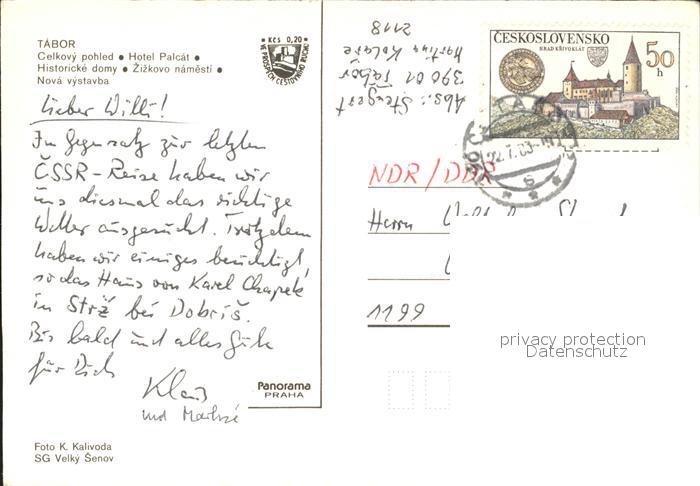 TÁBOR
Celkový pohled • Hotel Palcát •
Historické domy • Žižkovo náměstí •
Nová výstavba
Kčs 0,20
VE PROSPĚCH CESTOVNÍHO RUCHU
Lieber Willi!
Im Gegensatz zur letzten
ČSSR-Reise haben wir
uns diesmal das richtige
Wetter ausgesucht. Trotzdem
haben wir einiges besichtigt,
so das Haus von Karel Chapek
in Strž bei Dobříš.
Bis bald und alles Gute
für Dich
Klaus
und
Panorama
PRAHA
Foto K. Kalivoda
SG Velký Šenov
Abs.: Stengert
390 01 Tabor
Martina Koláře
2118
ČESKOSLOVENSKO
HRAD KŘIVOKLÁT
50
h
22.7.83
NDR/DDR
Herrn
1199
privacy protection
Datenschutz